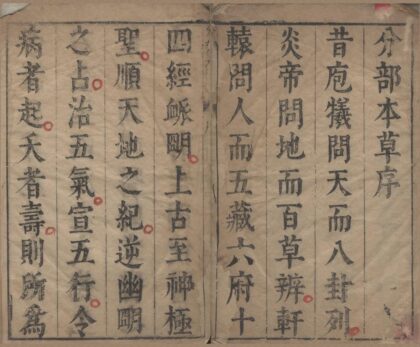 分部本草序
昔庖犧問天而八卦列
炎帝問地而百草辨軒
轅問人而五藏六府十
四經䘑明上古至神極
聖順天地之紀逆幽明
之占治五氣宣五行令
病者起夭者壽則所爲